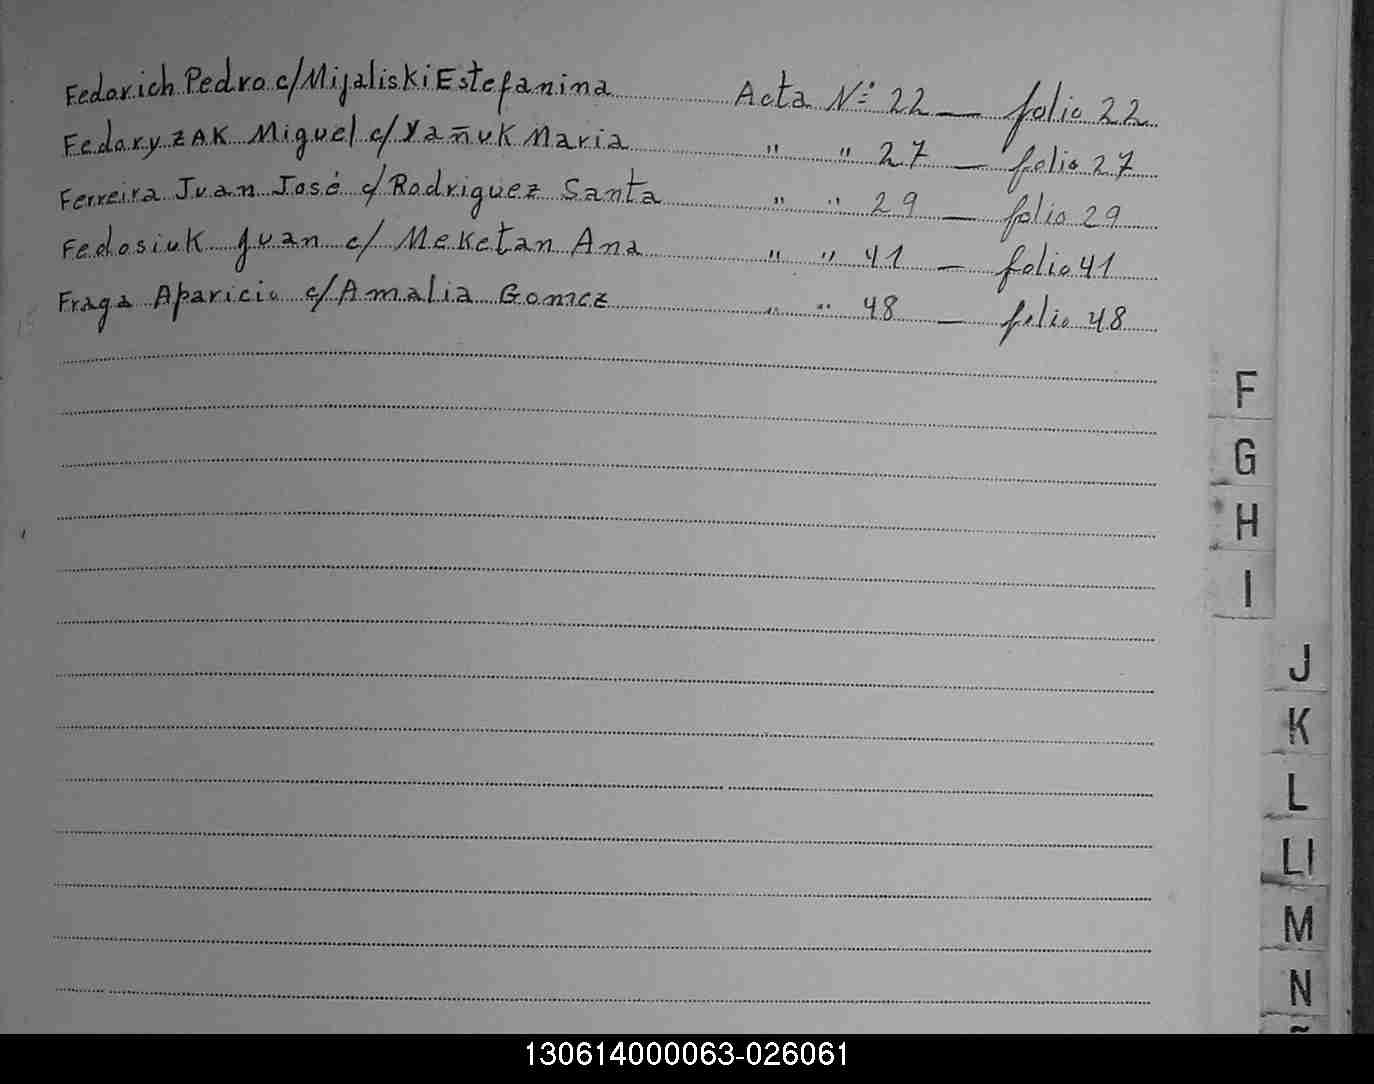 Fedorich Pedro c/Mijaliski Estefanina Acta Nº 22 — folio 22
Fedoryzak Miguel c/Yañuk Maria " " 27 — folio 27
Ferreira Juan José c/Rodriguez Santa " " 29 — folio 29
Fedosiuk Juan c/ Meketan Ana " " 41 — folio 41
Fraga Aparicio c/Amalia Gomez " " 48 — folio 48
F
G
H
I
J
K
L
Ll
M
N
130614000063-026061